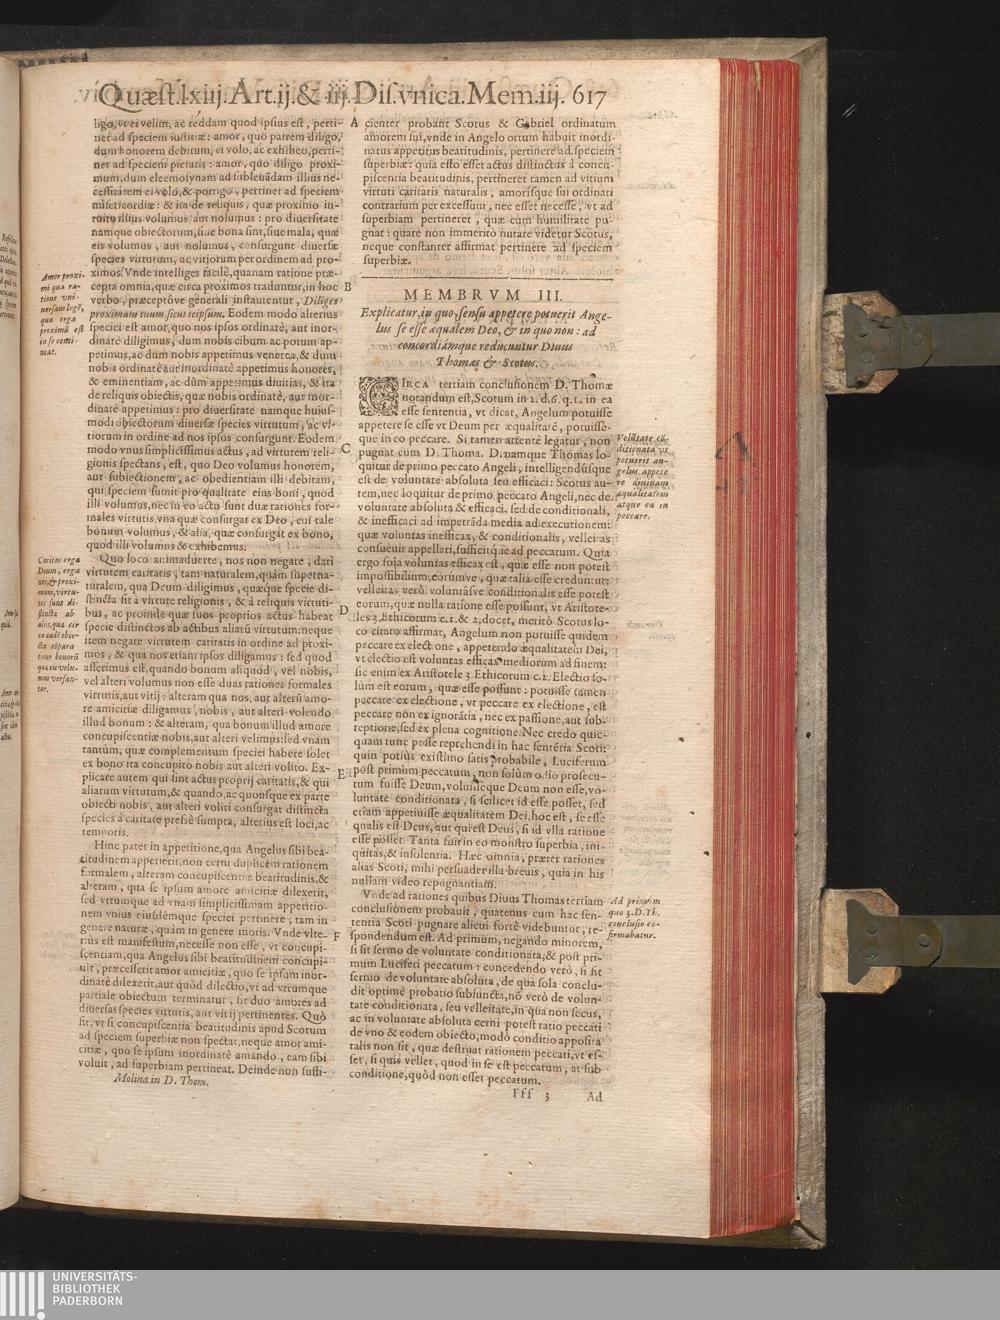 Quæst.lxiij.Art.ij.& iij.Dis.vnica.Mem.iij. 617
ligo, vt ei velim, ac reddam quod ipsius est, perti-
net ad speciem iustitiæ: amor, quo patrem diligo,
dum honorem debitum, ei volo, ac exhibeo, perti-
net ad speciem pietatis: amor, quo diligo proxi-
mum, dum eleemosynam ad subleuãdam illius ne-
cessitatem ei volo, & porrigo, pertinet ad speciem
misericordiæ: & ita de reliquis, quæ proximo in-
tuitu illius volumus aut nolumus: pro diuersitate
namque obiectorum, siue bona sint, siue mala, quæ
eis volumus, aut nolumus, consurgunt diuersæ
species virtutum, ac vitiorum per ordinem ad pro-
ximos. Vnde intelliges facilè, quanam ratione præ-
cepta omnia, quæ circa proximos traduntur, in hoc
verbo, præceptóve generali instaurentur, Diliges
proximum tuum, sicut teipsum. Eodem modo alterius
speciei est amor, quo nos ipsos ordinatè, aut inor-
dinatè diligimus, dum nobis cibum ac potum ap-
petimus, ac dum nobis appetimus venerea, & dum
nobis ordinatè aut inordinatè appetimus honores,
& eminentiam, ac dũm appetimus diuitias, & ita
de reliquis obiectis, quæ nobis ordinatè, aut inor-
dinatè appetimus: pro diuersitate namque huius-
modi obiectorum diuersæ species virtutum, ac vi-
tiorum in ordine ad nos ipsos consurgunt. Eodem
modo vnus simplicissimus actus, ad virtutem reli-
gionis spectans, est, quo Deo volumus honorem,
aut subiectionem, ac obedientiam illi debitam,
qui speciem sumit pro qualitate eius boni, quod
illi volumus, nec in eo actu sunt duæ rationes for-
males virtutis, vna quæ consurgat ex Deo, cui tale
bonum volumus, & alia, quæ consurgãt ex bono,
quod illi volumus & exhibemus.
Quo loco animaduerte, nos non negare, dari
virtutem caritatis, tam naturalem, quàm superna-
turalem, qua Deum diligimus, quæque specie di-
stincta sit à virtute religionis, & à reliquis virtuti-
bus, ac proinde quæ suos proprios actus habeat
specie distinctos ab actibus aliarũ virtutum: neque
item negare virtutem caritatis in ordine ad proxi-
mos, & qua nos etiam ipsos diligamus: sed quod
asserimus est, quando bonum aliquod, vel nobis,
vel alteri volumus non esse duas rationes formales
virtutis, aut vitij: alteram qua nos, aut alterũ amo-
re amicitiæ diligamus, nobis, aut alteri volendo
illud bonum: & alteram, qua bonum illud amore
concupiscentiæ nobis, aut alteri velimus: sed vnam
tantùm, quæ complementum speciei habere solet
ex bono ita concupito nobis aut alteri volito. Ex-
plicare autem qui sint actus proprij caritatis, & qui
aliarum virtutum, & quando, ac quousque ex parte
obiecti nobis, aut alteri voliti consurgat distincta
species à caritate pressè sumpta, alterius est loci, ac
temporis.
Hinc patet in appetitione, qua Angelus sibi bea-
titudinem appetierit, non cerni duplicem rationem
formalem, alteram concupiscentiæ beatitudinis, &
alteram, qua se ipsum amore amicitiæ dilexerit,
sed vtrumque ad vnam simplicissimam appetitio-
nem vnius eiusdémque speciei pertinere, tam in
genere naturæ, quàm in genere moris. Vnde vlte-
rius est manifestum, necesse non esse, vt concupi-
scentiam, qua Angelus sibi beatitudinem concupi-
uit, præcesserit amor amicitiæ, quo se ipsum inor-
dinatè dilexerit, aut quòd dilectio, vt ad vtrumque
partiale obiectum terminatur, sit duo amores ad
diuersas species virtutis, aut vitij pertinentes. Quò
fit, vt si concupiscentia beatitudinis apud Scotum
ad speciem superbiæ non spectat, neque amor ami-
citiæ, quo se ipsum inordinatè amando, eam sibi
voluit, ad superbiam pertineat. Deinde non suffi-
Molina in D. Thom.
Amor proxi-
mi qua ra-
tione vni-
uersam legẽ,
qua erga
proximũ est
in se conti-
neat.
Caritas erga
Deum, erga
nos, & proxi-
mum, virtu-
tes sunt di-
stinctæ ab
alijs, quæ cir
ca eadē obie-
cta cōpara
tione bonorũ
quæ eis volu-
mus versan-
tur.
A
B
C
D
E
F
cienter probant Scotus & Gabriel ordinatum
amorem sui, vnde in Angelo ortum habuit inordi-
natus appetitus beatitudinis, pertinere ad speciem
superbiæ: quia esto esset actus distinctus à concu-
piscentia beatitudinis, pertineret tamen ad vitium
virtuti caritatis naturalis, amorisque sui ordinati
contrarium per excessum, nec esset necesse, vt ad
superbiam pertineret, quæ cum humilitate pu-
gnat: quare non immeritò nutare videtur Scotus,
neque constanter affirmat pertinere ad speciem
superbiæ.
MEMBRVM III.
Explicatur, in quo sensu appetere potuerit Ange-
lus se esse æqualem Deo, & in quo non: ad
concordiámque reducuntur Diuus
Thomas & Scotus.
CIRCA tertiam conclusionem D. Thomæ
notandum est, Scotum in 2. d. 6. q. 1. in ea
esse sententia, vt dicat, Angelum potuisse
appetere se esse vt Deum per æqualitatẽ, potuisse-
que in eo peccare. Si tamen attentè legatur, non
pugnat cum D. Thoma. D. namque Thomas lo-
quitur de primo peccato Angeli, intelligendúsque
est de voluntate absoluta seu efficaci: Scotus au-
tem, nec loquitur de primo peccato Angeli, nec de
voluntate absoluta & efficaci, sed de conditionali,
& inefficaci ad imperãda media ad executionem:
quæ voluntas inefficax, & conditionalis, velleitas
consueuit appellari, sufficitq́ie ad peccatum. Quia
ergo sola voluntas efficax est, quæ esse non potest
impossibilium, eorúmve, quæ talia esse creduntur:
velleitas verò voluntásve conditionalis esse potest
eorum, quæ nulla ratione esse possunt, vt Aristote-
les 3. Ethicorum c. 1. & 2. docet, meritò Scotus lo-
co citato affirmat, Angelum non potuisse quidem
peccare ex electione, appetendo æqualitatem Dei,
vt electio est voluntas efficax mediorum ad finem:
sic enim ex Aristotele 3. Ethicorum c. 2. Electio so-
lùm est eorum, quæ esse possunt: potuisse tamen
peccare ex electione, vt peccare ex electione, est
peccare non ex ignorãtia, nec ex passione, aut sub-
reptione, sed ex plena cognitione. Nec credo quic-
quam tunc posse reprehendi in hac sentẽtia Scoti:
quin potiùs existimo satis probabile, Luciferum
post primum peccatum, non solùm odio prosecu-
tum fuisse Deum, voluisseque Deum non esse, vo-
luntate conditionata, si scilicet id esse posset, sed
etiam appetiuisse æqualitatem Dei, hoc est, se esse
qualis est Deus, aut qui est Deus, si id vlla ratione
esse posset. Tanta fuit in eo monstro superbia, ini-
quitas, & insolentia. Hæc omnia, præter rationes
alias Scoti, mihi persuadet illa breuis, quia in his
nullam video repugnantiam.
Vnde ad rationes quibus Diuus Thomas tertiam
conclusionem probauit, quatenus cum hac sen-
tentia Scoti pugnare alicui fortè videbuntur, re-
spondendum est. Ad primum, negando minorem,
si sit sermo de voluntate conditionata, & post pri-
mum Luciferi peccatum: concedendo verò, si sit
sermo de voluntate absoluta, de qua sola conclu-
dit optimè probatio subiuncta, nõ verò de volun-
tate conditionata, seu velleitate, in qua non secus,
ac in voluntate absoluta cerni potest ratio peccati
de vno & eodem obiecto, modò conditio apposita
talis non sit, quæ destruat rationem peccati, vt es-
set, si quis vellet, quod in se est peccatum, at sub
conditione, quòd non esset peccatum.
Fff 3 Ad
Volũtate cō-
ditionata vt
potuerit an-
gelus appete
re diuinam
æqualitatem
atque ea in
peccare.
Ad primum
quo 3. D. Th.
conclusio co-
firmabatur.
UNIVERSITÄTS-
BIBLIOTHEK
PADERBORN